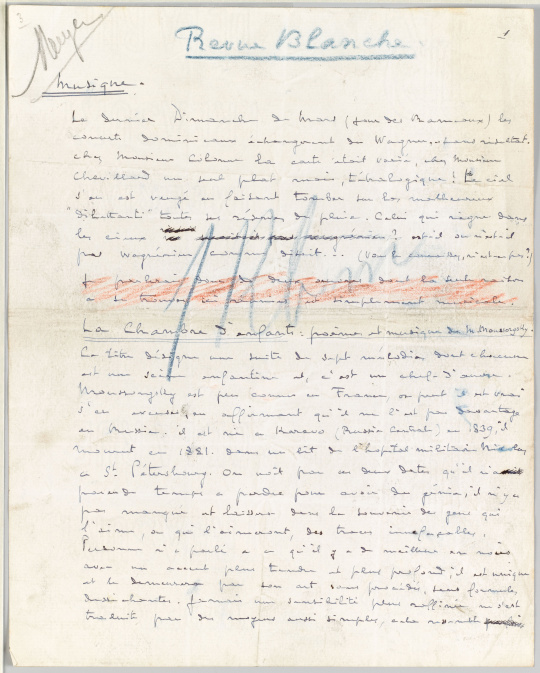 3
1
Revue Blanche.
Musique.
Le dernier Dimanche de Mars (jour des Rameaux) les
concerts dominicaux échangèrent du Wagner.. sans résultat.
chez Monsieur Colonne la carte était variée, chez Monsieur
Chevillard un seul plat mais, tétralogique! Le ciel
s'en est vengé en faisant tomber sur les malheureux
"dilettanti" toutes ses réserves de pluie. Celui qui règne dans
les cieux ? est-il ou n'est-il
pas Wagnérien comme dirait... (Vous le connaissez, n'est-ce pas?)
et simplement musicale.
La Chambre d'enfants: poème et musique de M. Moussorgsky.
Ce titre désigne une suite de sept mélodies dont chacune
est une scène enfantine et, c'est un chef-d'œuvre.
Moussorgsky est peu connu en France, on peut il est vrai
s'en excuser, en affirmant qu'il ne l'est pas davantage
en Russie. il est né à Karevo (Russie Centrale) en 1839, il
mourut en 1881. dans un lit de l'hopital militaire Nicolas,
à St. Pétersbourg. On voit par ces deux dates qu'il n'avait
pas de temps à perdre pour avoir du génie, il n'y a
pas manqué et laissera dans le souvenir des gens qui
l'aiment, ou qui l'aimeront, des traces ineffaçables.
Personne n'a parlé à ce qu'il y a de meilleur en nous
avec un accent plus tendre et plus profond, il est unique
et le demeurera par son art sans procédés, sans formules
desséchantes. Jamais une sensibilité plus raffinée ne s'est
traduite par des moyens aussi simples, cela ressemble